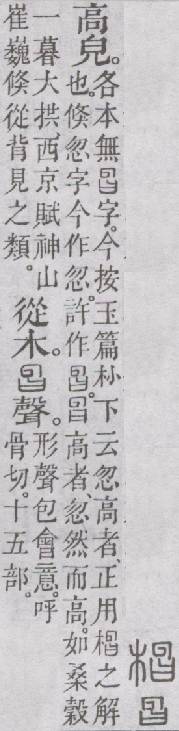 㮯
㫚
高皃。
各本無㫚字。今按玉篇朴下云忽高者、正用㮯之解
也。倐忽字今作忽。許作㫚。㫚高者、忽然而高。如桑榖
一暮大拱、西京賦神山
崔巍倐從背見之類。
從木。㫚聲。
形聲包會意。呼
骨切。十五部。